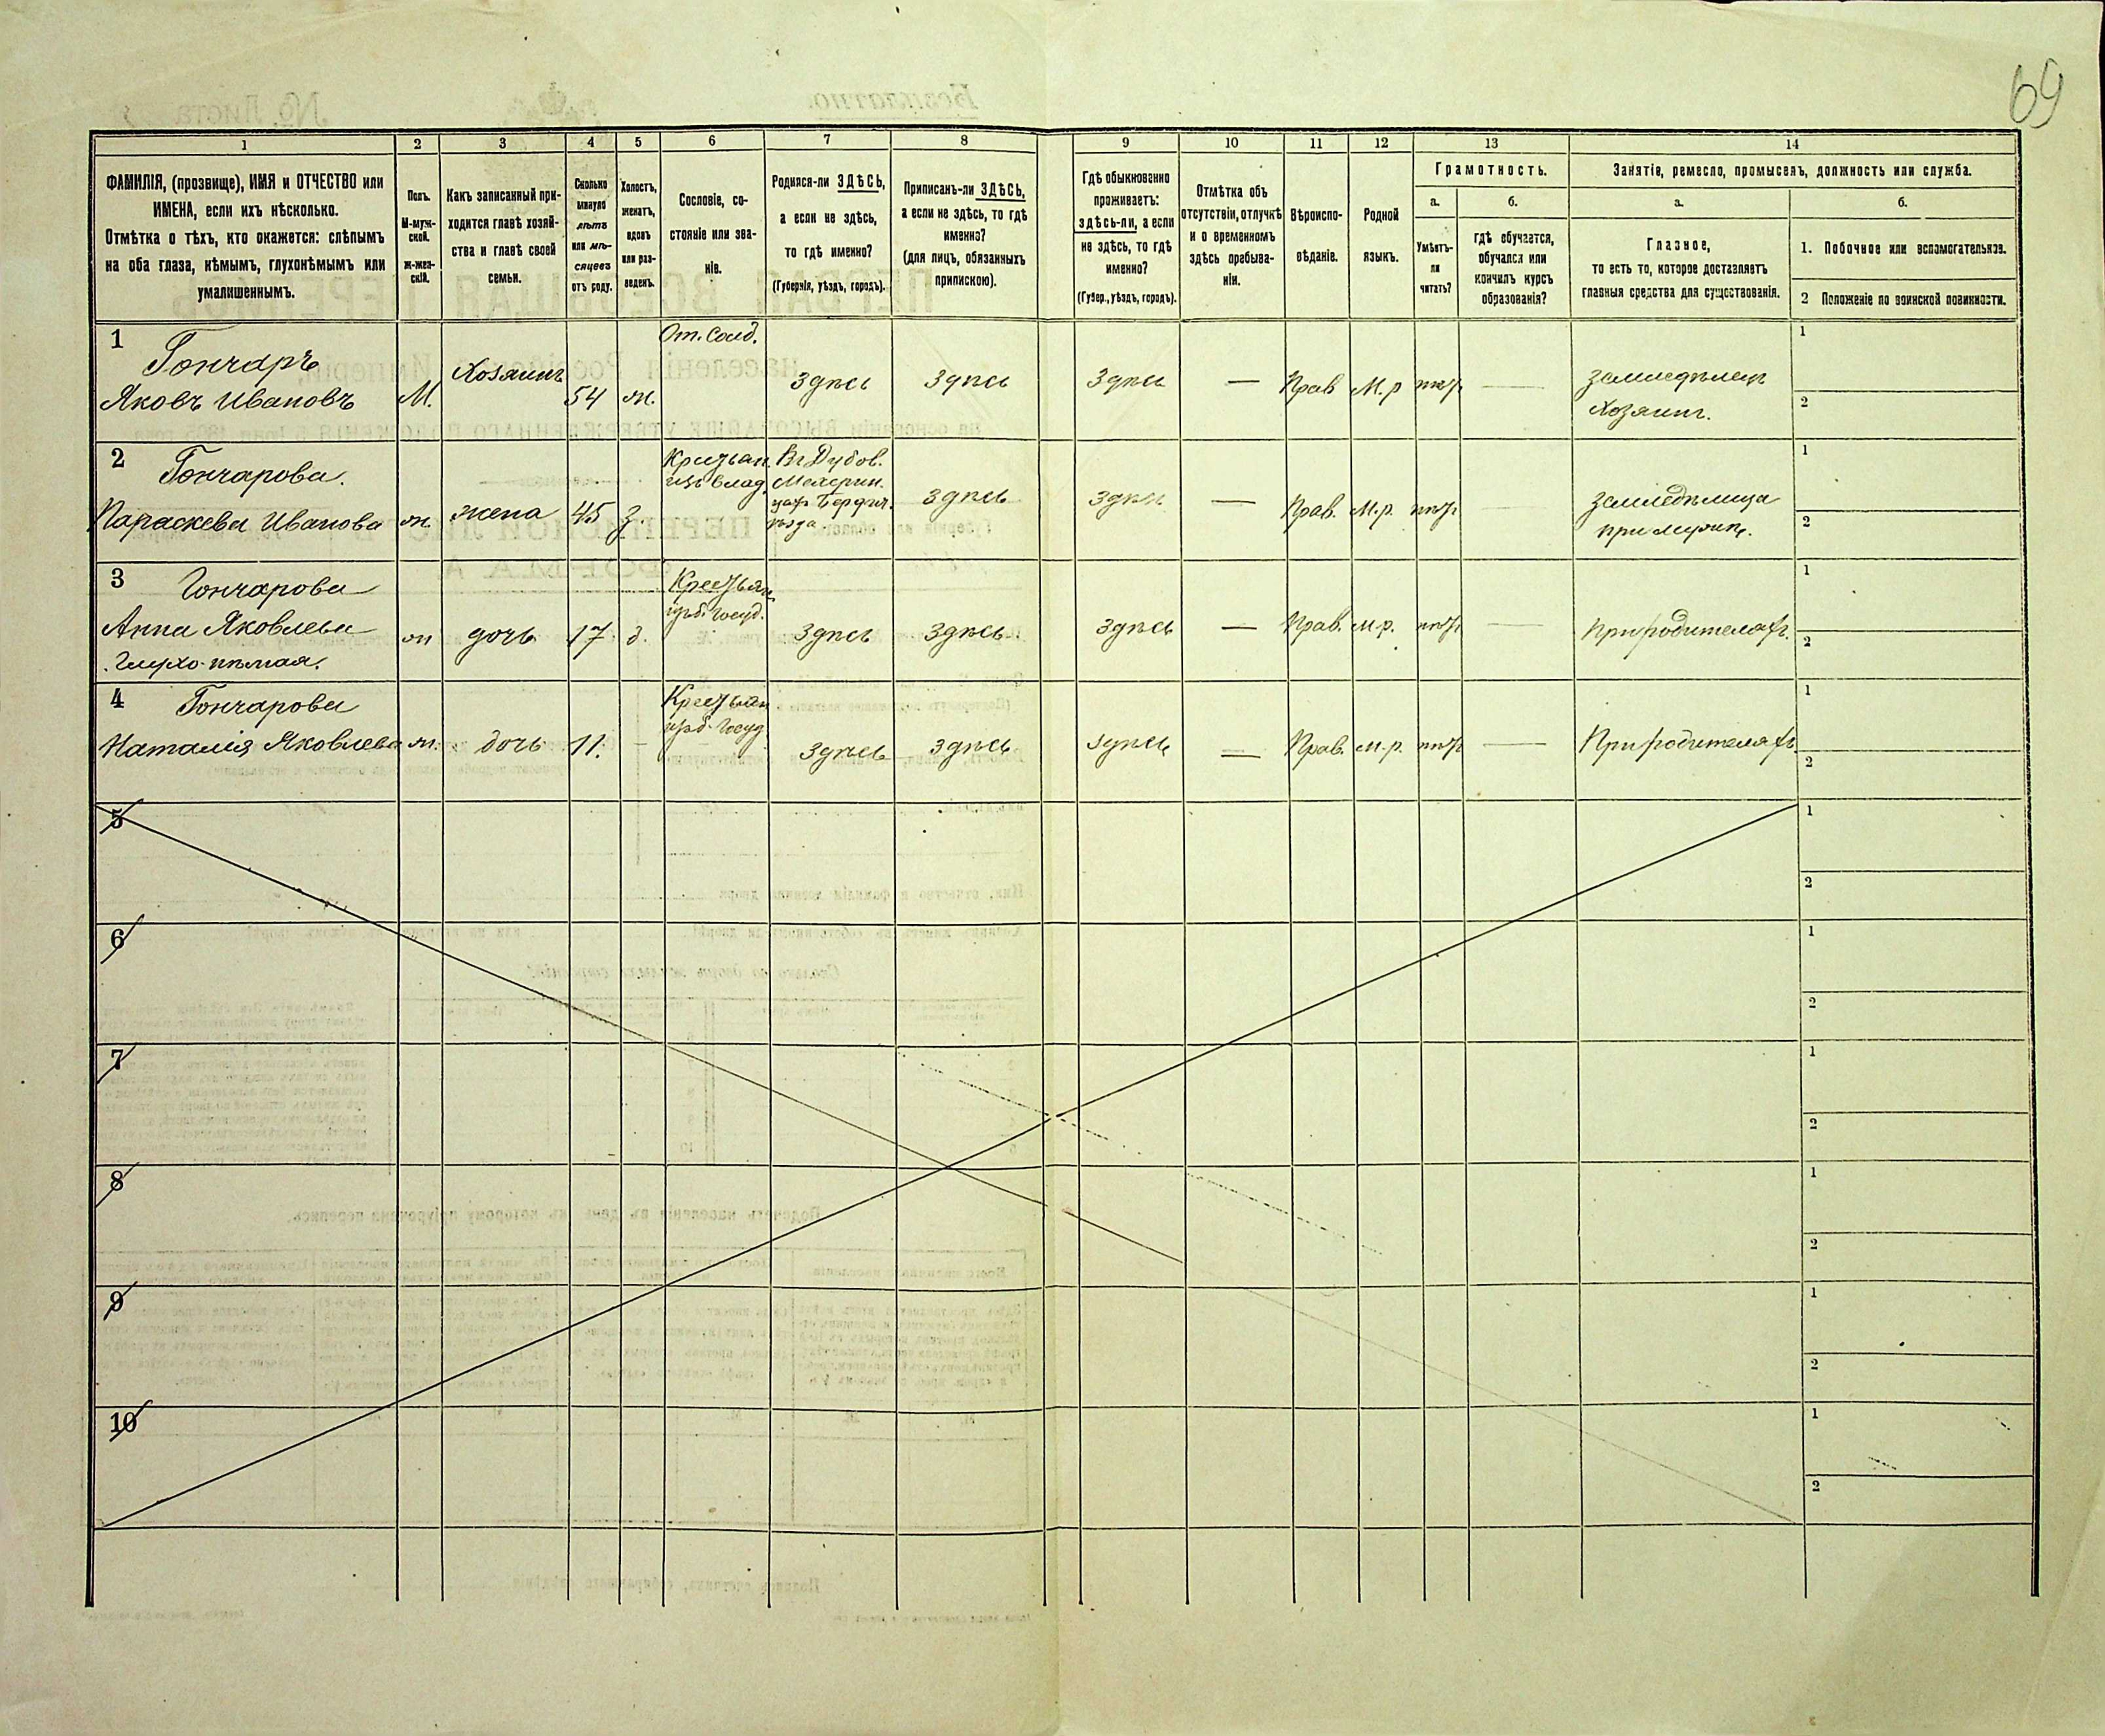 69
1 2 3 4 5 6 7 8 9 10 11 12 13 14
ФАМИЛІЯ, (прозвище), ИМЯ и ОТЧЕСТВО или
ИМЕНА, если ихъ нѣсколько.
Отмѣтка о тѣхъ, кто окажется: слѣпымъ
на оба глаза, нѣмымъ, глухонѣмымъ или
умалишеннымъ.
Полъ.
М-муж-
ской.
ж-жен-
скій.
Какъ записанный при-
ходится главѣ хозяй-
ства и главѣ своей
семьи.
Сколько
минуло
лѣтъ
или мѣ-
сяцевъ
отъ роду.
Холостъ,
женатъ,
вдовъ
или раз-
веденъ.
Сословіе, со-
стояніе или зва-
ніе.
Родился-ли ЗДѢСЬ,
а если не здѣсь,
то гдѣ именно?
(Губернія, уѣздъ, городъ).
Приписанъ-ли ЗДѢСЬ,
а если не здѣсь, то гдѣ
именно?
(для лицъ, обязанныхъ
припискою).
Гдѣ обыкновенно
проживаетъ:
здѣсь-ли, а если
не здѣсь, то гдѣ
именно?
(Губер., уѣздъ, городъ).
Отмѣтка объ
отсутствіи, отлучкѣ
и о временномъ
здѣсь пребыва-
ніи.
Вѣроиспо-
вѣданіе.
Родной
языкъ.
Грамотность.
а.
Умѣетъ-
ли
читать?
б.
гдѣ обучается,
обучался или
кончилъ курсъ
образованія?
Занятіе, ремесло, промыселъ, должность или служба.
а.
Главное,
то есть то, которое доставляетъ
главныя средства для существованія.
б.
1. Побочное или вспомогательное.
2 Положеніе по воинской повинности.
1
Гончаръ
Яковъ Ивановъ
М.
Хозяинъ
54
ж.
От. Солд.
Здѣсь
Здѣсь
Здѣсь
—
Прав
М.р
нѣтъ
—
земледѣлец
Хозяинъ.
1
2
2
Гончарова.
Параскева Иванова
ж.
жена
45
з.
Крестьан.
изъ влад.
Въ Дубов.
уѣзда.
здѣсь
здѣсь
—
Прав.
М.р.
нѣтъ
земледѣлица
при мужѣ.
1
2
3
Гончарова
Анна Яковлева
глухо-нѣмая.
ж
дочь
17
д.
Крестьян.
Госуд.
Здѣсь
Здѣсь
Здѣсь
—
Прав.
М.р.
нѣтъ
—
При родителяхъ.
1
2
4
Гончарова
Наталія Яковлева
ж.
дочь
11.
—
Крестьян
Госуд
Здѣсь
здѣсь
здѣсь
—
Прав.
М.р.
нѣтъ
—
При родителяхъ
1
2
5
1
2
6
1
2
7
1
2
8
1
2
9
1
2
10
1
2